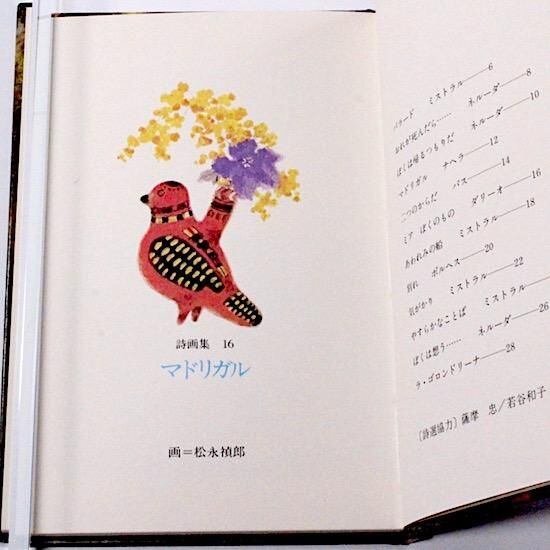 詩画集 16
マドリガル
画＝松永禎郎
バラード ミストラル——6
おれが死んだら…… ネルーダ——8
ぼくは帰るつもりだ ネルーダ——10
マドリガル ナヘラ——12
二つのからだ パス——14
ミア ぼくのもの ダリーオ——16
あわれみの船 ミストラル——18
別れ ボルヘス——20
気がかり ミストラル——22
やすらかなことば ミストラル
ぼくは想う…… ネルーダ——26
ラ・ゴロンドリーナ——28
〔詩選協力〕薩摩 忠／若谷和子